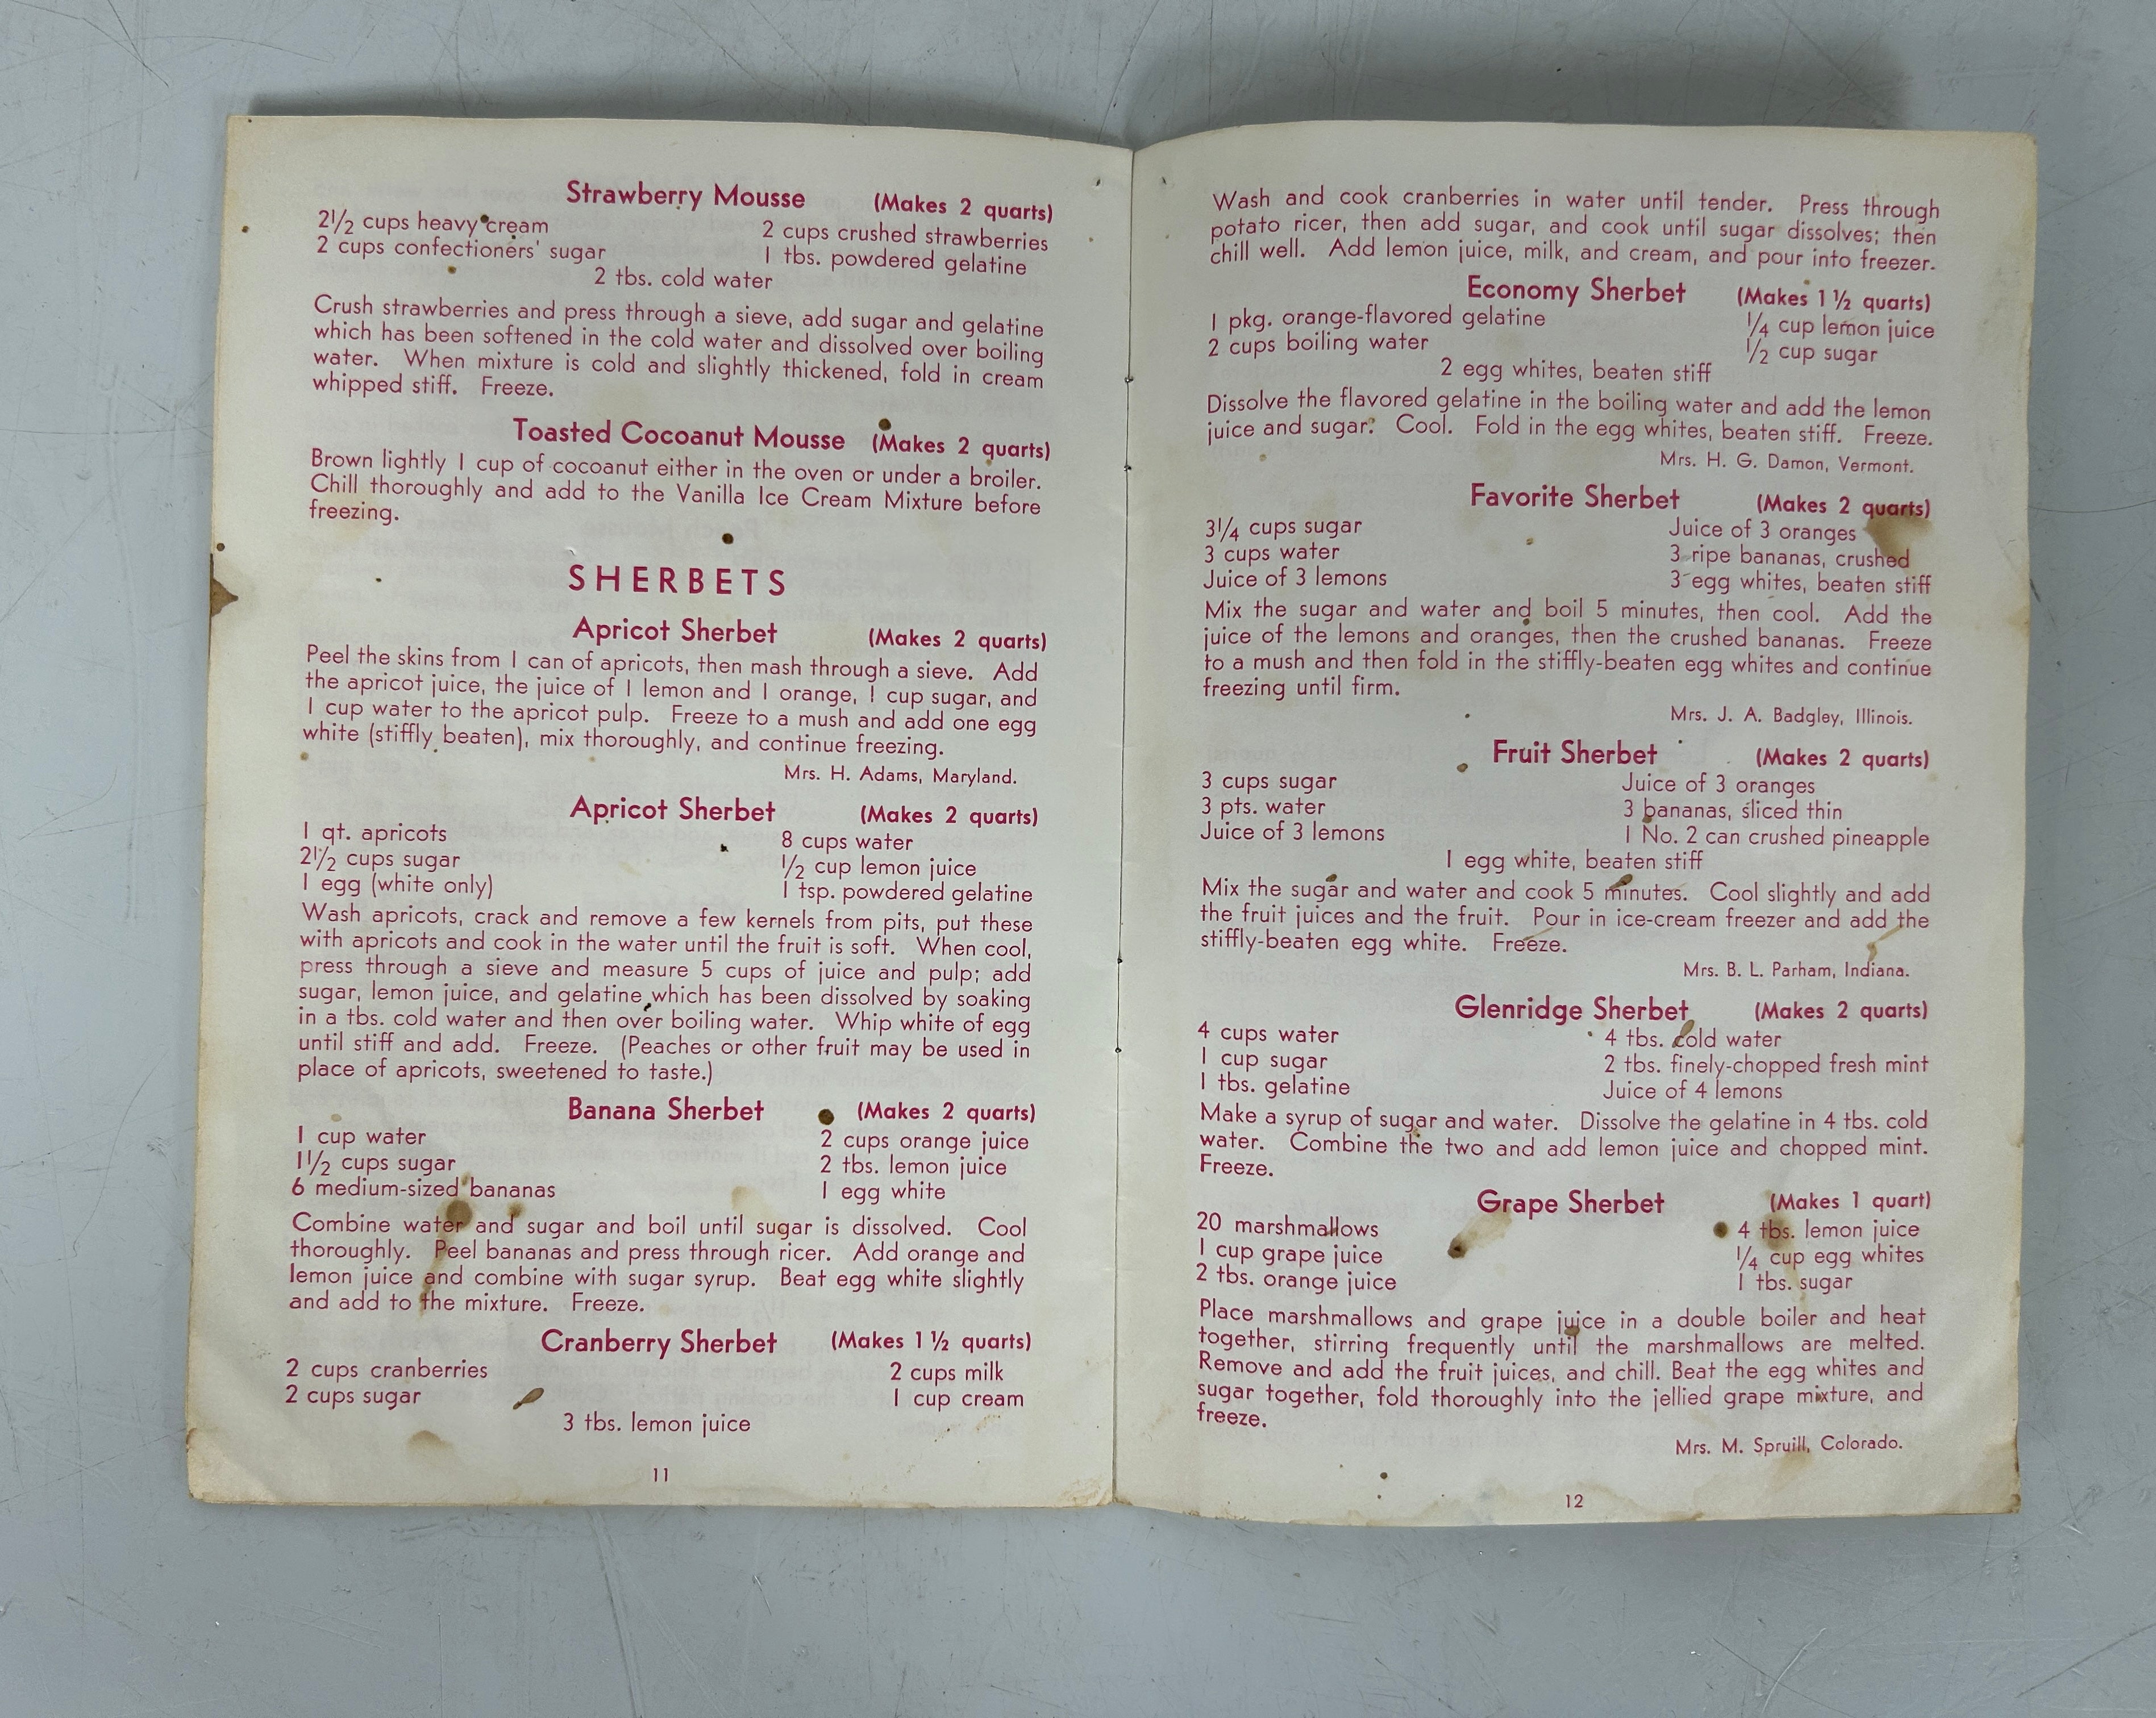 Strawberry Mousse (Makes 2 quarts)
2½ cups heavy cream 2 cups crushed strawberries
2 cups confectioners' sugar 1 tbs. powdered gelatine
2 tbs. cold water
Crush strawberries and press through a sieve, add sugar and gelatine
which has been softened in the cold water and dissolved over boiling
water. When mixture is cold and slightly thickened, fold in cream
whipped stiff. Freeze.
Toasted Cocoanut Mousse (Makes 2 quarts)
Brown lightly 1 cup of cocoanut either in the oven or under a broiler.
Chill thoroughly and add to the Vanilla Ice Cream Mixture before
freezing.
SHERBETS
Apricot Sherbet (Makes 2 quarts)
Peel the skins from 1 can of apricots, then mash through a sieve. Add
the apricot juice, the juice of 1 lemon and 1 orange, 1 cup sugar, and
1 cup water to the apricot pulp. Freeze to a mush and add one egg
white (stiffly beaten), mix thoroughly, and continue freezing.
Mrs. H. Adams, Maryland.
Apricot Sherbet (Makes 2 quarts)
1 qt. apricots 8 cups water
2½ cups sugar ½ cup lemon juice
1 egg (white only) 1 tsp. powdered gelatine
Wash apricots, crack and remove a few kernels from pits, put these
with apricots and cook in the water until the fruit is soft. When cool,
press through a sieve and measure 5 cups of juice and pulp; add
sugar, lemon juice, and gelatine which has been dissolved by soaking
in a tbs. cold water and then over boiling water. Whip white of egg
until stiff and add. Freeze. (Peaches or other fruit may be used in
place of apricots, sweetened to taste.)
Banana Sherbet (Makes 2 quarts)
1 cup water 2 cups orange juice
1½ cups sugar 2 tbs. lemon juice
6 medium-sized bananas 1 egg white
Combine water and sugar and boil until sugar is dissolved. Cool
thoroughly. Peel bananas and press through ricer. Add orange and
lemon juice and combine with sugar syrup. Beat egg white slightly
and add to the mixture. Freeze.
Cranberry Sherbet (Makes 1½ quarts)
2 cups cranberries 2 cups milk
2 cups sugar 1 cup cream
3 tbs. lemon juice
11
Wash and cook cranberries in water until tender. Press through
potato ricer, then add sugar, and cook until sugar dissolves; then
chill well. Add lemon juice, milk, and cream, and pour into freezer.
Economy Sherbet (Makes 1½ quarts)
1 pkg. orange-flavored gelatine ¼ cup lemon juice
2 cups boiling water ½ cup sugar
2 egg whites, beaten stiff
Dissolve the flavored gelatine in the boiling water and add the lemon
juice and sugar. Cool. Fold in the egg whites, beaten stiff. Freeze.
Mrs. H. G. Damon, Vermont.
Favorite Sherbet (Makes 2 quarts)
3¼ cups sugar Juice of 3 oranges
3 cups water 3 ripe bananas, crushed
Juice of 3 lemons 3 egg whites, beaten stiff
Mix the sugar and water and boil 5 minutes, then cool. Add the
juice of the lemons and oranges, then the crushed bananas. Freeze
to a mush and then fold in the stiffly-beaten egg whites and continue
freezing until firm.
Mrs. J. A. Badgley, Illinois.
Fruit Sherbet (Makes 2 quarts)
3 cups sugar Juice of 3 oranges
3 pts. water 3 bananas, sliced thin
Juice of 3 lemons 1 No. 2 can crushed pineapple
1 egg white, beaten stiff
Mix the sugar and water and cook 5 minutes. Cool slightly and add
the fruit juices and the fruit. Pour in ice-cream freezer and add the
stiffly-beaten egg white. Freeze.
Mrs. B. L. Parham, Indiana.
Glenridge Sherbet (Makes 2 quarts)
4 cups water 4 tbs. cold water
1 cup sugar 2 tbs. finely-chopped fresh mint
1 tbs. gelatine Juice of 4 lemons
Make a syrup of sugar and water. Dissolve the gelatine in 4 tbs. cold
water. Combine the two and add lemon juice and chopped mint.
Freeze.
Grape Sherbet (Makes 1 quart)
20 marshmallows 4 tbs. lemon juice
1 cup grape juice ¼ cup egg whites
2 tbs. orange juice 1 tbs. sugar
Place marshmallows and grape juice in a double boiler and heat
together, stirring frequently until the marshmallows are melted.
Remove and add the fruit juices, and chill. Beat the egg whites and
sugar together, fold thoroughly into the jellied grape mixture, and
freeze.
Mrs. M. Spruill, Colorado.
12